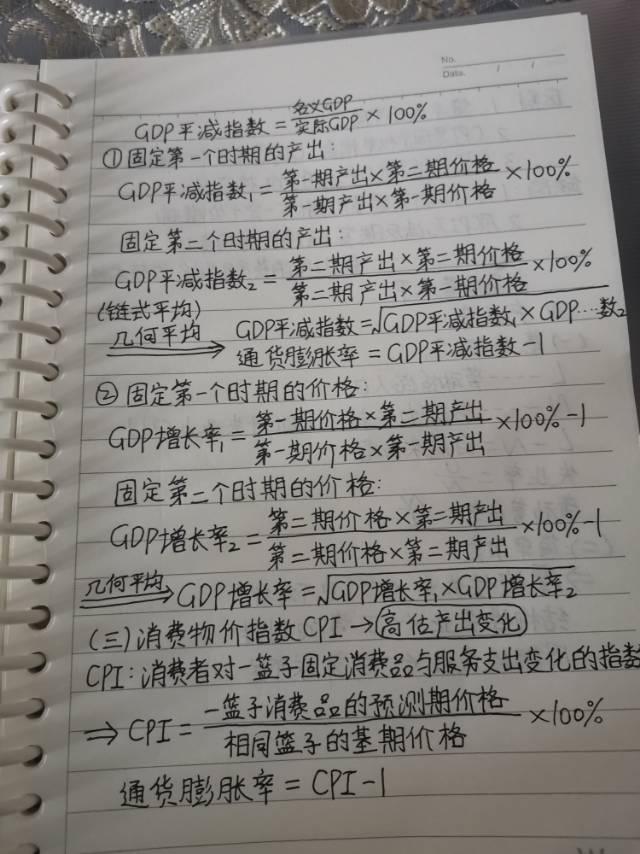 No.
Date. / /
GDP平减指数=名义GDP/实际GDP×100%
①固定第一个时期的产出:
GDP平减指数₁=第一期产出×第二期价格/第一期产出×第一期价格×100%
固定第二个时期的产出:
GDP平减指数₂=第二期产出×第二期价格/第二期产出×第一期价格×100%
(链式平均)
几何平均 → GDP平减指数=√GDP平减指数₁×GDP…数₂
通货膨胀率=GDP平减指数-1
②固定第一个时期的价格:
GDP增长率₁=第一期价格×第二期产出/第一期价格×第一期产出×100%-1
固定第二个时期的价格:
GDP增长率₂=第二期价格×第二期产出/第二期价格×第二期产出×100%-1
几何平均 → GDP增长率=√GDP增长率₁×GDP增长率₂
(三)消费物价指数CPI→高估产出变化
CPI:消费者对一篮子固定消费品与服务支出变化的指数
⇒CPI=一篮子消费品的预测期价格/相同篮子的基期价格×100%
通货膨胀率=CPI-1